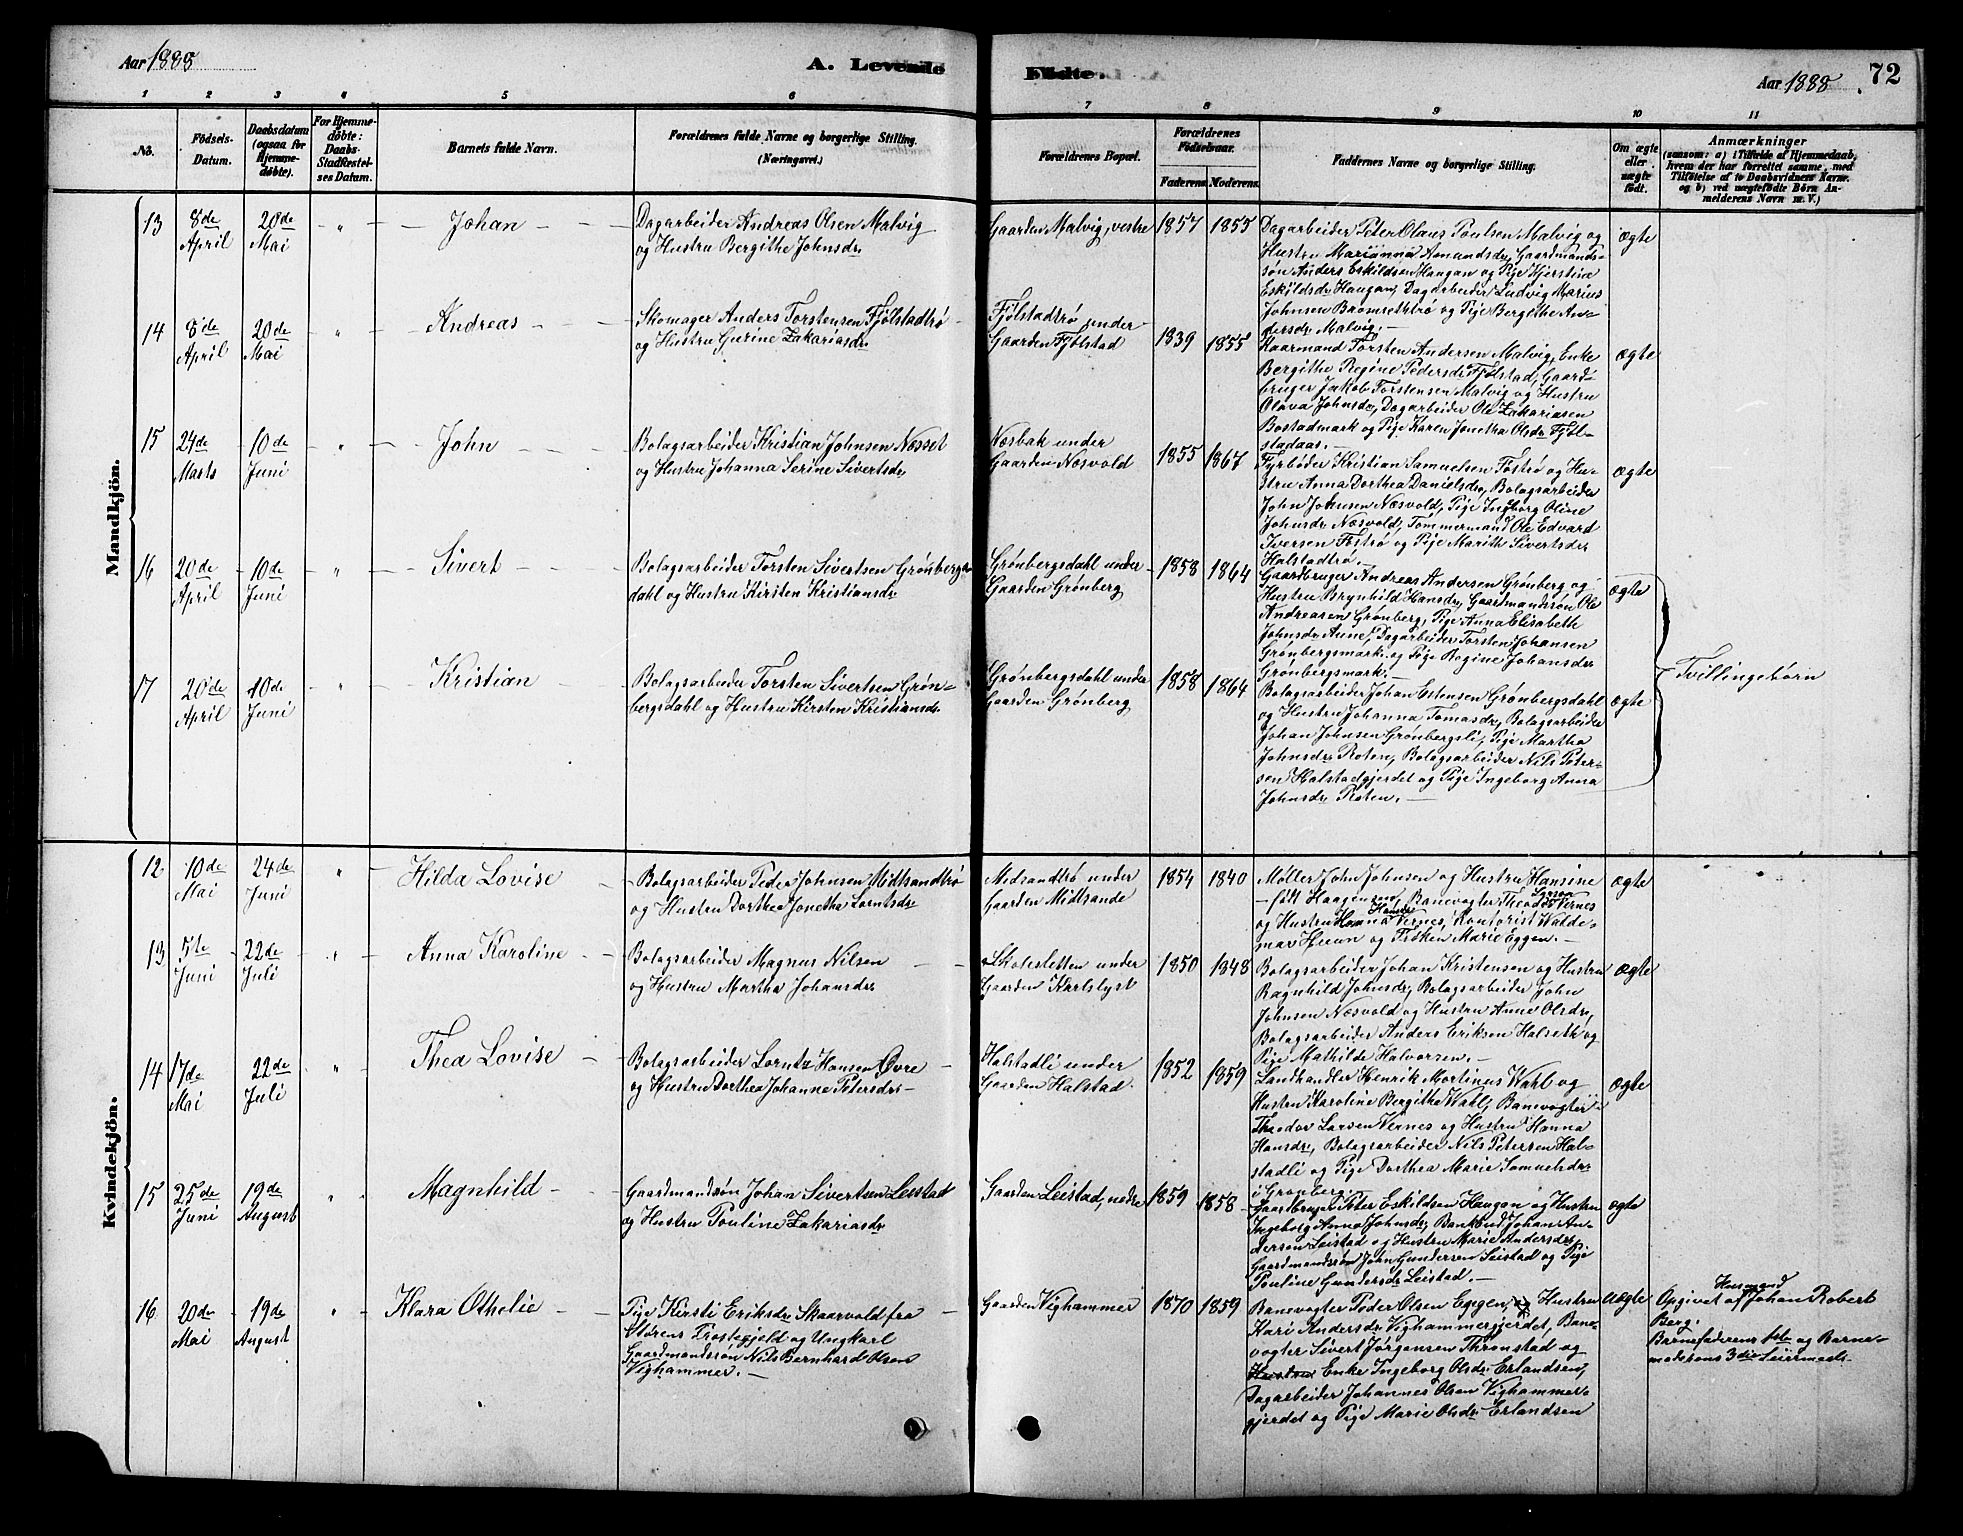 Aar 1888
A. Levende
Fødte.
Aar 1888
72
1 2 3 4 5 6 7 8 9 10 11
No.
Fødsels-
Datum.
Daabsdatum
(ogsaa for
Hjemme-
døbte).
For Hjemme-
døbte:
Daabs-
Stadfæstel-
ses Datum.
Barnets fulde Navn.
Forældrenes fulde Navne og borgerlige Stilling.
(Næringsvei.)
Forældrenes Bopæl.
Forældrenes
Fødselsaar.
Faderens. Moderens.
Faddernes Navne og borgerlige Stilling.
Om ægte
eller
uægte
født.
Anmærkninger
(saasom: a) i Tilfælde af Hjemmedaab,
hvem der har forrettet samme, med
Tilføielse af to Daabsvidners Navne.
og b) ved uægtefødte Børn An-
melderens Navn m. V.)
Mandkjøn.
13
8de
April
20de
Mai
"
Johan
Dagarbeider Andreas Olsen Malvig
og Hustru Bergithe Johnsdr
Gaarden Malvig, vestre
1857 1855
Dagarbeider Peter Olaus Poulsen Malvig og
Hustru Marianna Amundsdr, Gaardmands-
søn Anders Eskildsen Haugan og Pige Kjerstine
Eskildsdr Haugan, Dagarbeider Ludvig Marius
Johnsen Baomsethtrø og Pige Bergithe An-
dersdr Malvig. -
ægte
14
8de
April
20de
Mai
"
Andreas
Skomager Anders Torstensen Fjølstadtrø
og Hustru Gurine Zakariasdr
Fjølstadtrø under
Gaarden Fjølstad
1839 1855
Kaarmand Torsten Andersen Malvig, Enke
Bergithe Regine Pedersdr Fjølstad, Gaard-
bruger Jakob Torstensen Malvig og Hustru
Olava Johnsdr, Dagarbeider Ole Zakariasen
Bostadmark og Pige Karen Jonetha Olsdr Fjøl-
stadaas. -
ægte
15
24de
Marts
10de
Juni
"
John
Bolagsarbeider Kristian Johnsen Næsset
og Hustru Johanna Serine Sivertsdr
Næsbak under
Gaarden Næsvold
1855 1867
Fyrbøder Kristian Samuelsen Tøstrø og Hu-
stru Anna Dorthea Danielsdr, Bolagsarbeider
John Johnsen Næsvold, Pige Ingborg Oline
Johnsdr Næsvold, Tømmermand Ole Edvard
Iversen Tøstrø og Pige Marith Sivertsdr
Halstadtrø.
ægte
16
20de
April
10de
Juni
"
Sivert
Bolagsarbeider Torsten Sivertsen Grønbergs-
dahl og Hustru Kirsten Kristiansdr
Grønbergsdahl under
Gaarden Grønberg
1858 1864
Gaardbruger Andreas Andersen Grønberg og
Hustru Brynhild Hansdr, Gaardmandssøn Ole
Andreasen Grønberg, Pige Anna Elisabeth
Johnsdr Aune, Dagarbeider Torsten Johansen
Grønbergsmark og Pige Regine Johansdr
Grønbergsmark. -
ægte
17
20de
April
10de
Juni
"
Kristian
Bolagsarbeider Torsten Sivertsen Grøn-
bergsdahl og Hustru Kirsten Kristiansdr
Grønbergsdahl under
Gaarden Grønberg
1858 1864
Bolagsarbeider Johan Estensen Grønbergsdahl
og Hustru Johanna Tomasdr, Bolagsarbeider
Johan Johnsen Grønbergsli, Pige Martha
Johnsdr Roten, Bolagsarbeider Nils Peter-
sen Halstadgjerdet og Pige Ingeborg Anna
Johnsdr Roten. -
ægte
Tvillingebørn
Kvindekjøn.
12
10de
Mai
24de
Juni
"
Hilda Lovise
Bolagsarbeider Peder Johnsen Midtsandtrø
og Hustru Dorthea Jonetha Lorntsdr
Midsandtrø under
Gaarden Midtsande
1854 1840
Møller John Johnsen og Hustru Hansine
født Haagensen, Banevogter Theodor Larsen Vernes
og Hustru Hanna Hansdr Vernes, Kontorist Walde-
mar Huun og Frøken Marie Eggen. -
ægte
13
5te
Juni
22de
Juli
"
Anna Karoline
Bolagsarbeider Magnus Nilsen
og Hustru Martha Johansdr
Skolesletten under
Gaarden Karlslyst
1850 1848
Bolagsarbeider Johan Kristensen og Hustru
Ragnhild Johnsdr, Bolagsarbeider John
Johnsen Næsvold og Hustru Anne Olsdr,
Bolagsarbeider Anders Eriksen Halseth og
Pige Mathilde Halvorsen. -
ægte
14
17de
Mai
22de
Juli
"
Thea Lovise
Bolagsarbeider Lorntz Hansen Øvre
og Hustru Dorthea Johanna Petersdr
Halstadli under
Gaarden Halstad.
1852 1859
Landhandler Henrik Mortinus Wahl og
Hustru Karoline Bergitha Wahl, Banevogter
Theodor Larsen Vernes og Hustru Hanna
Hansdr, Bolagsarbeider Nils Petersen Hal-
stadli og Pige Dorthea Marie Samuelsdr
i Grønberg.
ægte
15
25de
Juni
19de
August
"
Magnhild
Gaardmandsøn Johan Sivertsen Leistad
og Hustru Pouline Zakariasdr
Gaarden Leistad, nedre
1859 1858
Gaardbruger Peter Eskildsen Haugan og Hustru
Ingeborg Anna Johnsdr, Bankbud Johan An-
dersen Leistad og Hustru Marie Andersdr,
Gaardmandssøn John Gundersen Leistad og Pige
Pouline Gundersdr Leistad. -
ægte
16
20de
Mai
19de
August
"
Klara Othelie
Pige Kirsti Eriksdr Skaarvold fra
Størens Præstegjeld og Ungkarl
Gaardmandssøn Nils Bernhard Olsen
Vighammer. -
Gaarden Vighammer
1870 1859
Banevogter Peder Olsen Eggen, og Hustru
Kari Andersdr Vighammergjerdet, Bane-
vogter Sivert Jørgensen Thronstad og
Hustru Enke Ingeborg Olsdr Erlandsen,
Dagarbeider Johannes Olsen Vighammer-
gjerdet og Pige Marie Olsdr Erlandsen
uægte
Opgivet af Husmand Johan Robert
Berg.
Barnefaderens 1ste og Barne-
moderens 3die Leiermaal.